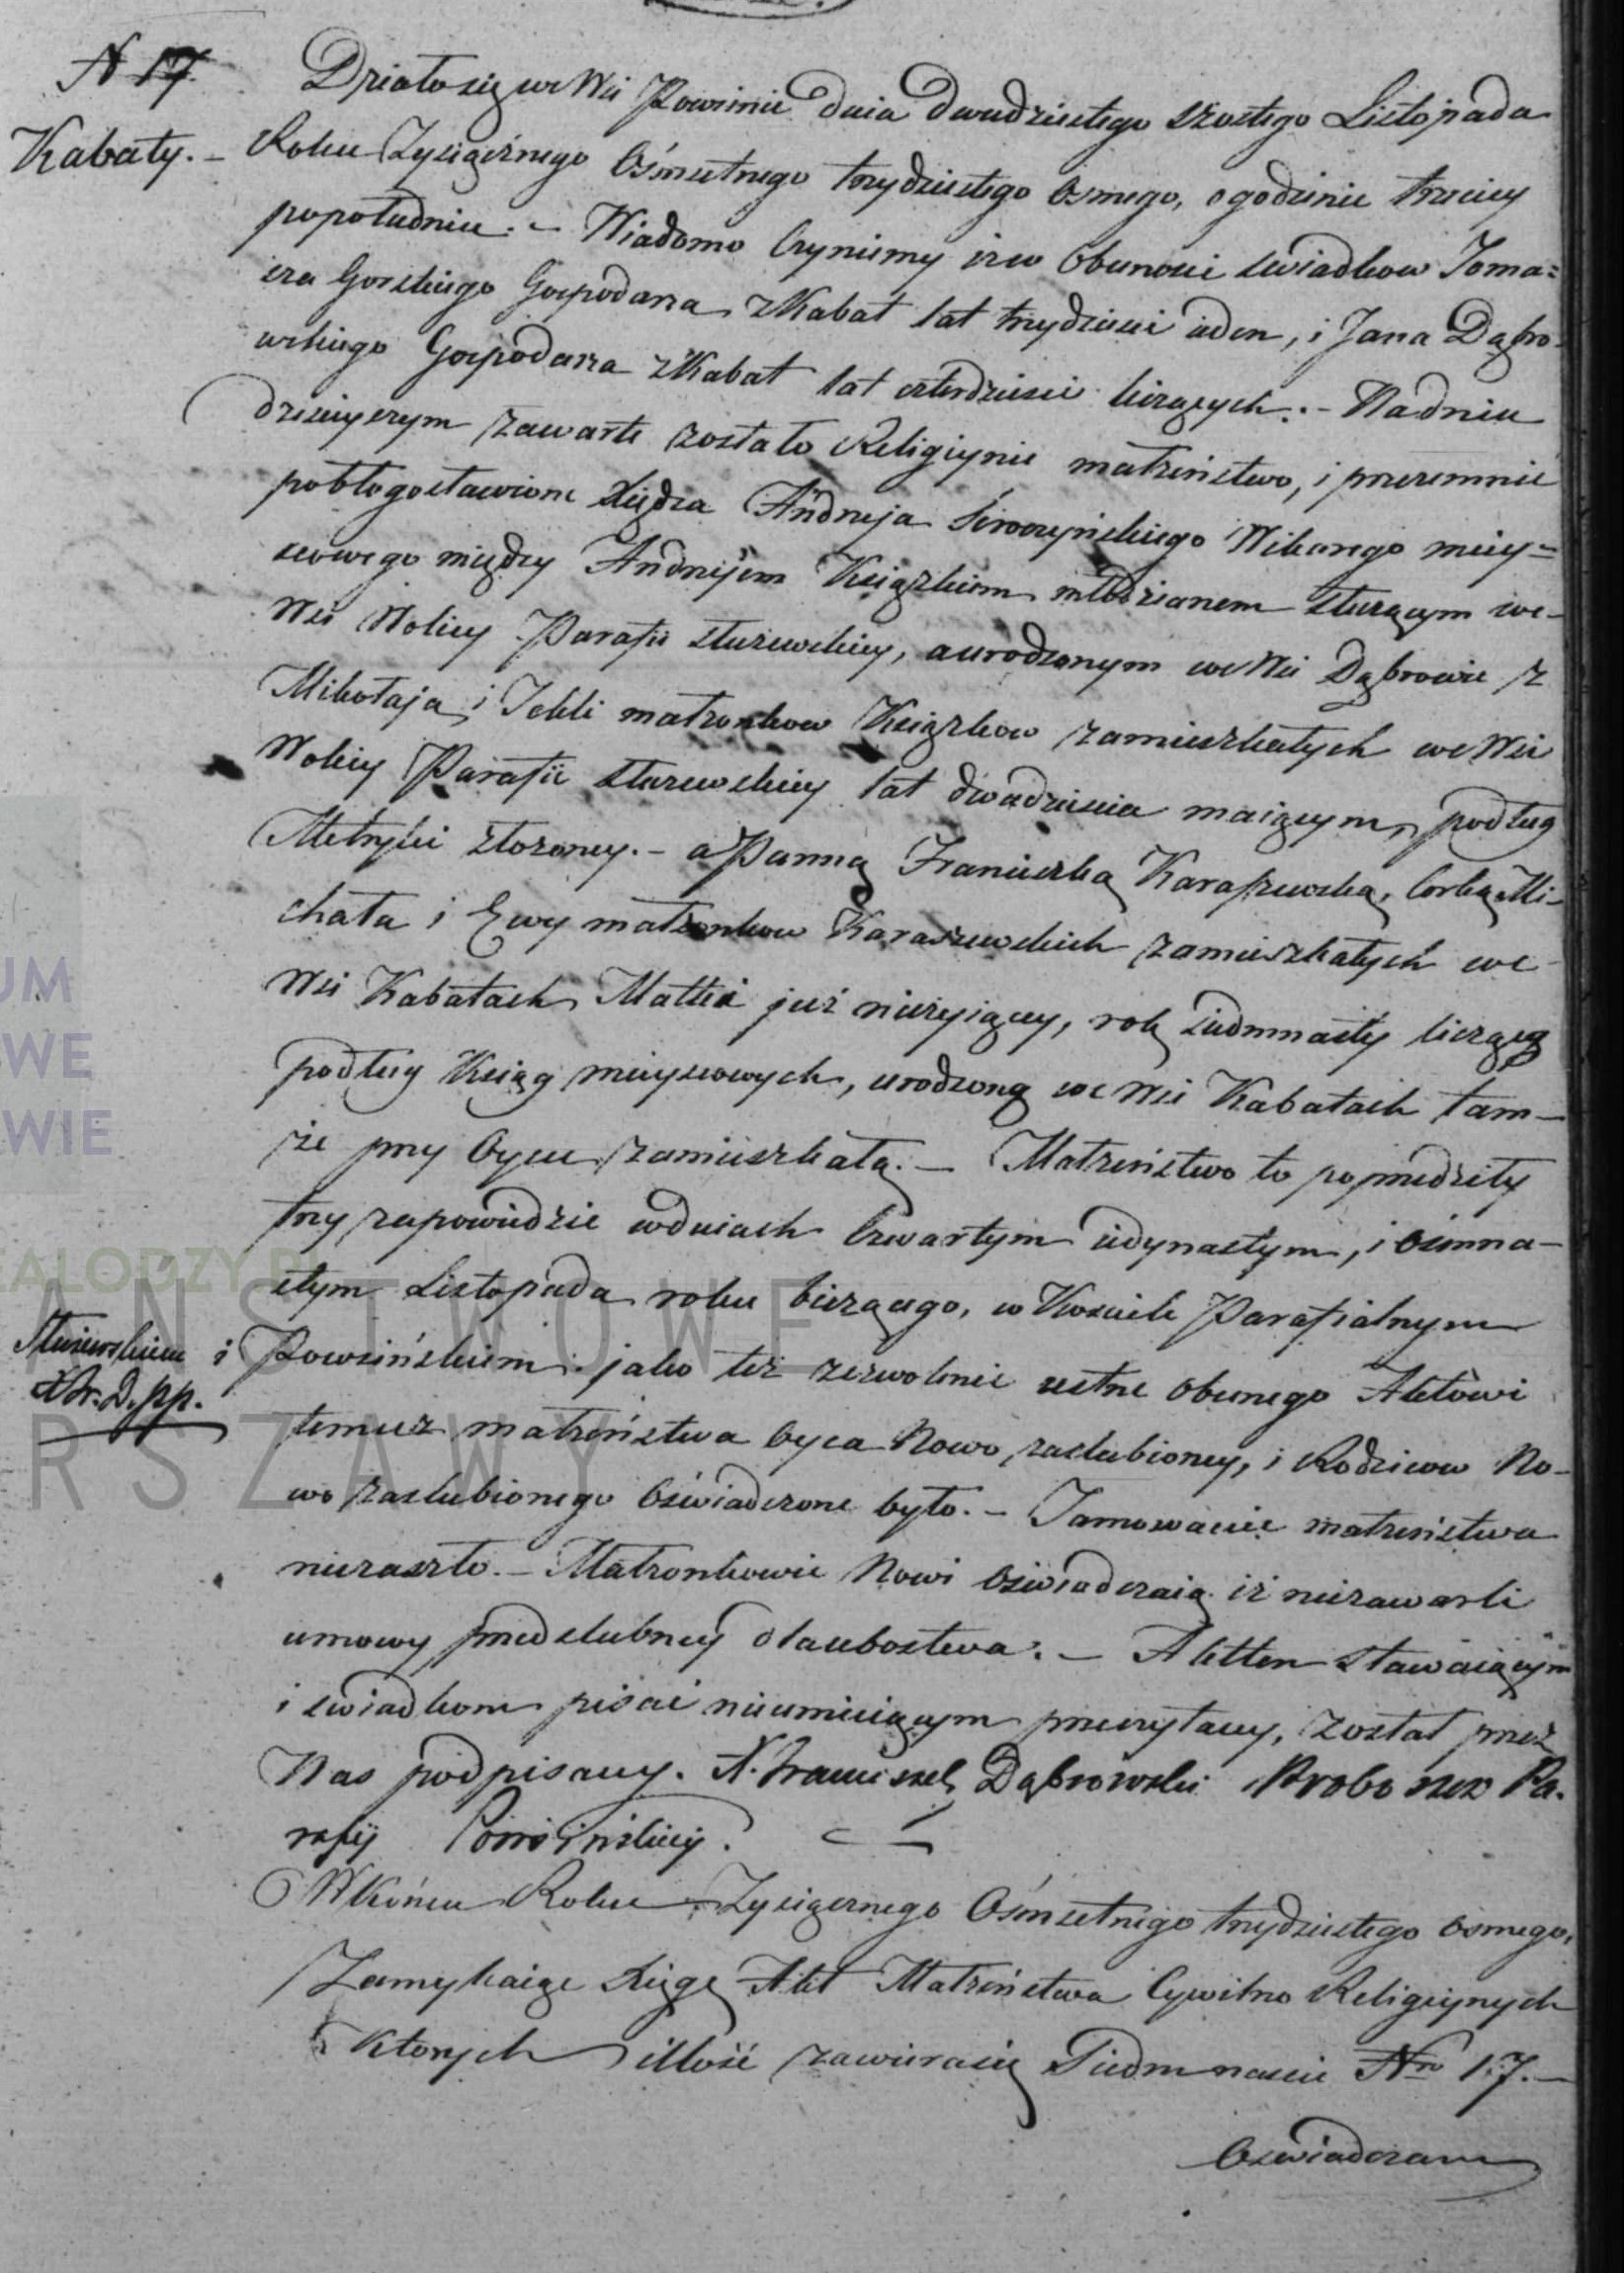 N 17.
Kabaty. –
Działo się we Wsi Powsinie dnia dwudziestego szostego Listopada
Roku Tysiącznego Ośmsetnego trzydziestego osmego, o godzinie trzeciey
popołudniu. – Wiadomo Czyniemy iż w Obecnosci swiadkow Toma=
sza Gorskiego Gospodarza z Kabat lat trzydziesci ieden, i Jana Dąbro-
wskiego Gospodarza z Kabat lat czterdziesci liczących. – Na dniu
dzisieyszym zawarte zostało Religiynie małżeństwo, i przezemnie
pobłogosławione Xiędza Andrzeja Wikarego miey=
scowego między Andrzejem Książkiem młodzianem służącym we-
Wsi Wolicy Parafii służewskiey, a urodzonym we Wsi Dąbrowie z
Mikołaja i Tekli małżonkow Książkow zamieszkałych we Wsi
Wolicy Parafii służewskiey lat dwadziescia maiącym, podług
Metryki złożoney. – a Panną Franciszką Karaszewską, Corką Mi-
chała i Ewy małżonkow Karaszewskich zamieszkałych we-
Wsi Kabatach Matki już nieżyiącey, rok siedmnasty liczącą
podług Ksiąg mieyscowych, urodzoną we Wsi Kabatach tam-
że przy Oycu zamieszkałą. – Małżeństwo to poprzedziły
trzy zapowiedzie w dniach Czwartym iedynastym, i osmna-
stym Listopada roku bieżącego, w Kosciele Parafialnym
Służewskim i
X. Fr. D. pp.
Powsińskim: jako też zezwolenie ustne obecnego Aktowi
temuż małżeństwa Oyca Nowo zaslubioney, i Rodzicow No-
wo zaslubionego Oświadczone było. – Tamowanie małżeństwa
niezaszło. – Małżonkowie Nowi Oświadczaią iż niezawarli
umowy przedslubney dla ubostwa. – Akt ten stawaiącym
i swiadkom pisać nieumieiącym przeczytany, został przez
Nas podpisany. X. Franciszek Dąbrowski Proboszcz Pa-
rafij Powsińskiey.
W Końcu Roku Tysiącznego Ośmsetnego trzydziestego osmego,
Zamykaiąc Xięgę Akt Małżeństwa Cywilno Religiynych
Ktorych illość zawiera się Siedmnascie Nro 17. –
Oswiadczam
UM
WE
WIE
EALODZY.PL
AŃSTWOWE
RSZAWY